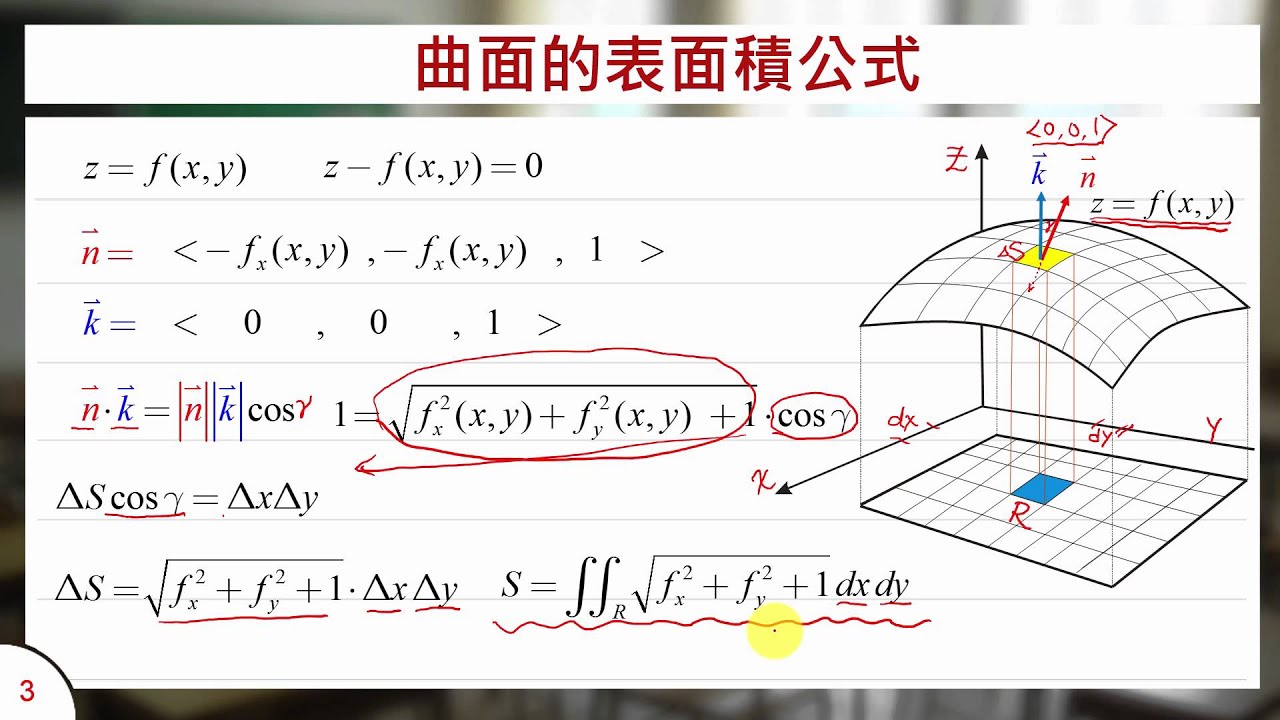 曲面的表面積公式
z = f(x, y) z − f(x, y) = 0
n⃗ = < − fₓ(x, y) , − fₓ(x, y) , 1 >
k⃗ = < 0 , 0 , 1 >
n⃗ · k⃗ = |n⃗||k⃗| cosγ 1 = √(fₓ²(x, y) + f_y²(x, y) + 1) · cosγ
ΔS cosγ = ΔxΔy
ΔS = √(fₓ² + f_y² + 1) · Δx Δy S = ∬_R √(fₓ² + f_y² + 1) dx dy
<0,0,1>
Z k⃗ n⃗
z = f(x, y)
ΔS
dx dy Y
X
R
3